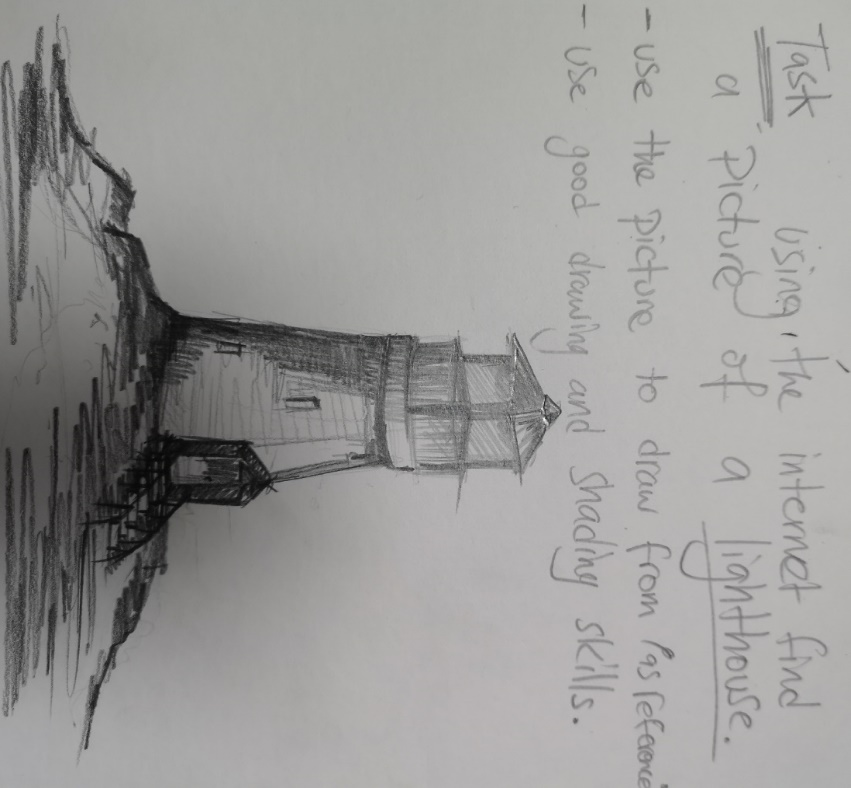 Task using the internet find
a picture of a lighthouse.
- use the picture to draw from / as reference
- use good drawing and shading skills.